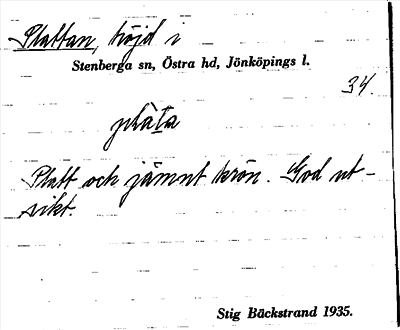 Plattan, höjd i
Stenberga sn, Östra hd, Jönköpings l.
34.
plàta
Platt och jämnt krön. God ut-
sikt.
Stig Bäckstrand 1935.